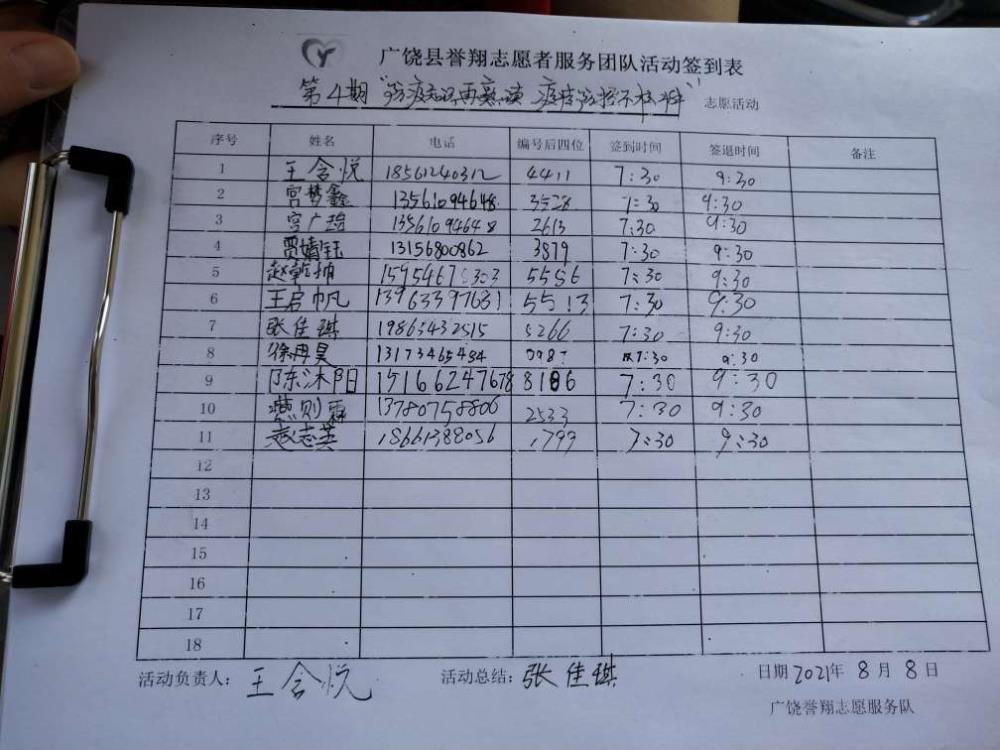 广饶县誉翔志愿者服务团队活动签到表
第4期"防疫知识再熟读 疫情防控不松懈" 志愿活动
序号 姓名 电话 编号后四位 签到时间 签退时间 备注
1 王含悦 18561240312 4411 7:30 9:30
2 宫梦鑫 13561094648 3528 7:30 9:30
3 宫广瑞 13561094648 2613 7:30 9:30
4 贾婧钰 13156800862 3879 7:30 9:30
5 赵 5556 7:30 9:30
6 王君帆 13963397631 5513 7:30 9:30
7 张佳琪 19863432515 5266 7:30 9:30
8 徐冉昊 13173465484 7:30 9:30
9 陈沐阳 15166247678 8186 7:30 9:30
10 则霖 13780758806 2533 7:30 9:30
11 志英 18661388056 1799 7:30 9:30
12
13
14
15
16
17
18
活动负责人: 王含悦 活动总结: 张佳琪 日期 2021年 8月 8日
广饶誉翔志愿服务队